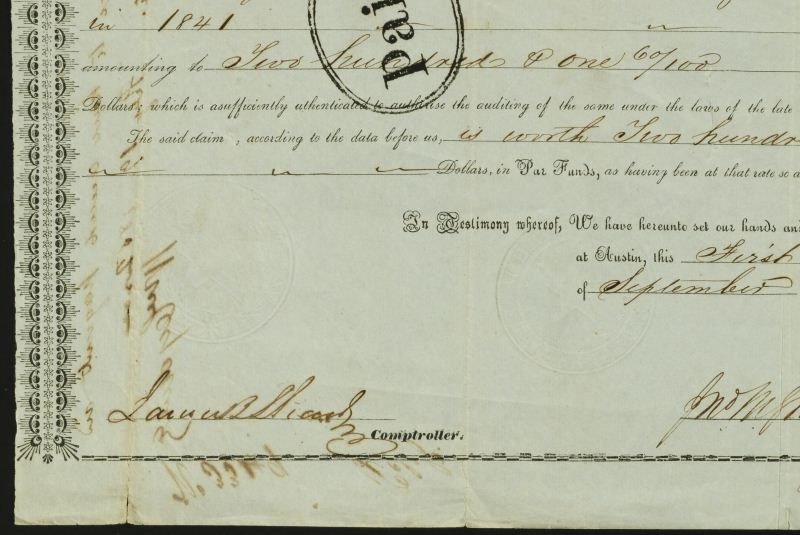 in 1841
amounting to Two hundred & one 60/100
Dollars; which is asufficiently uthenticated to authirise the auditing of the same under the laws of the late
The said claim, according to the data before us, is worth Two hundr
Dollars, in Par Funds, as having been at that rate so a
In Testimony whereof, We have hereunto set our hands and
at Austin, this First
of September
James B Shaw
Jno M
Comptroller.
paid